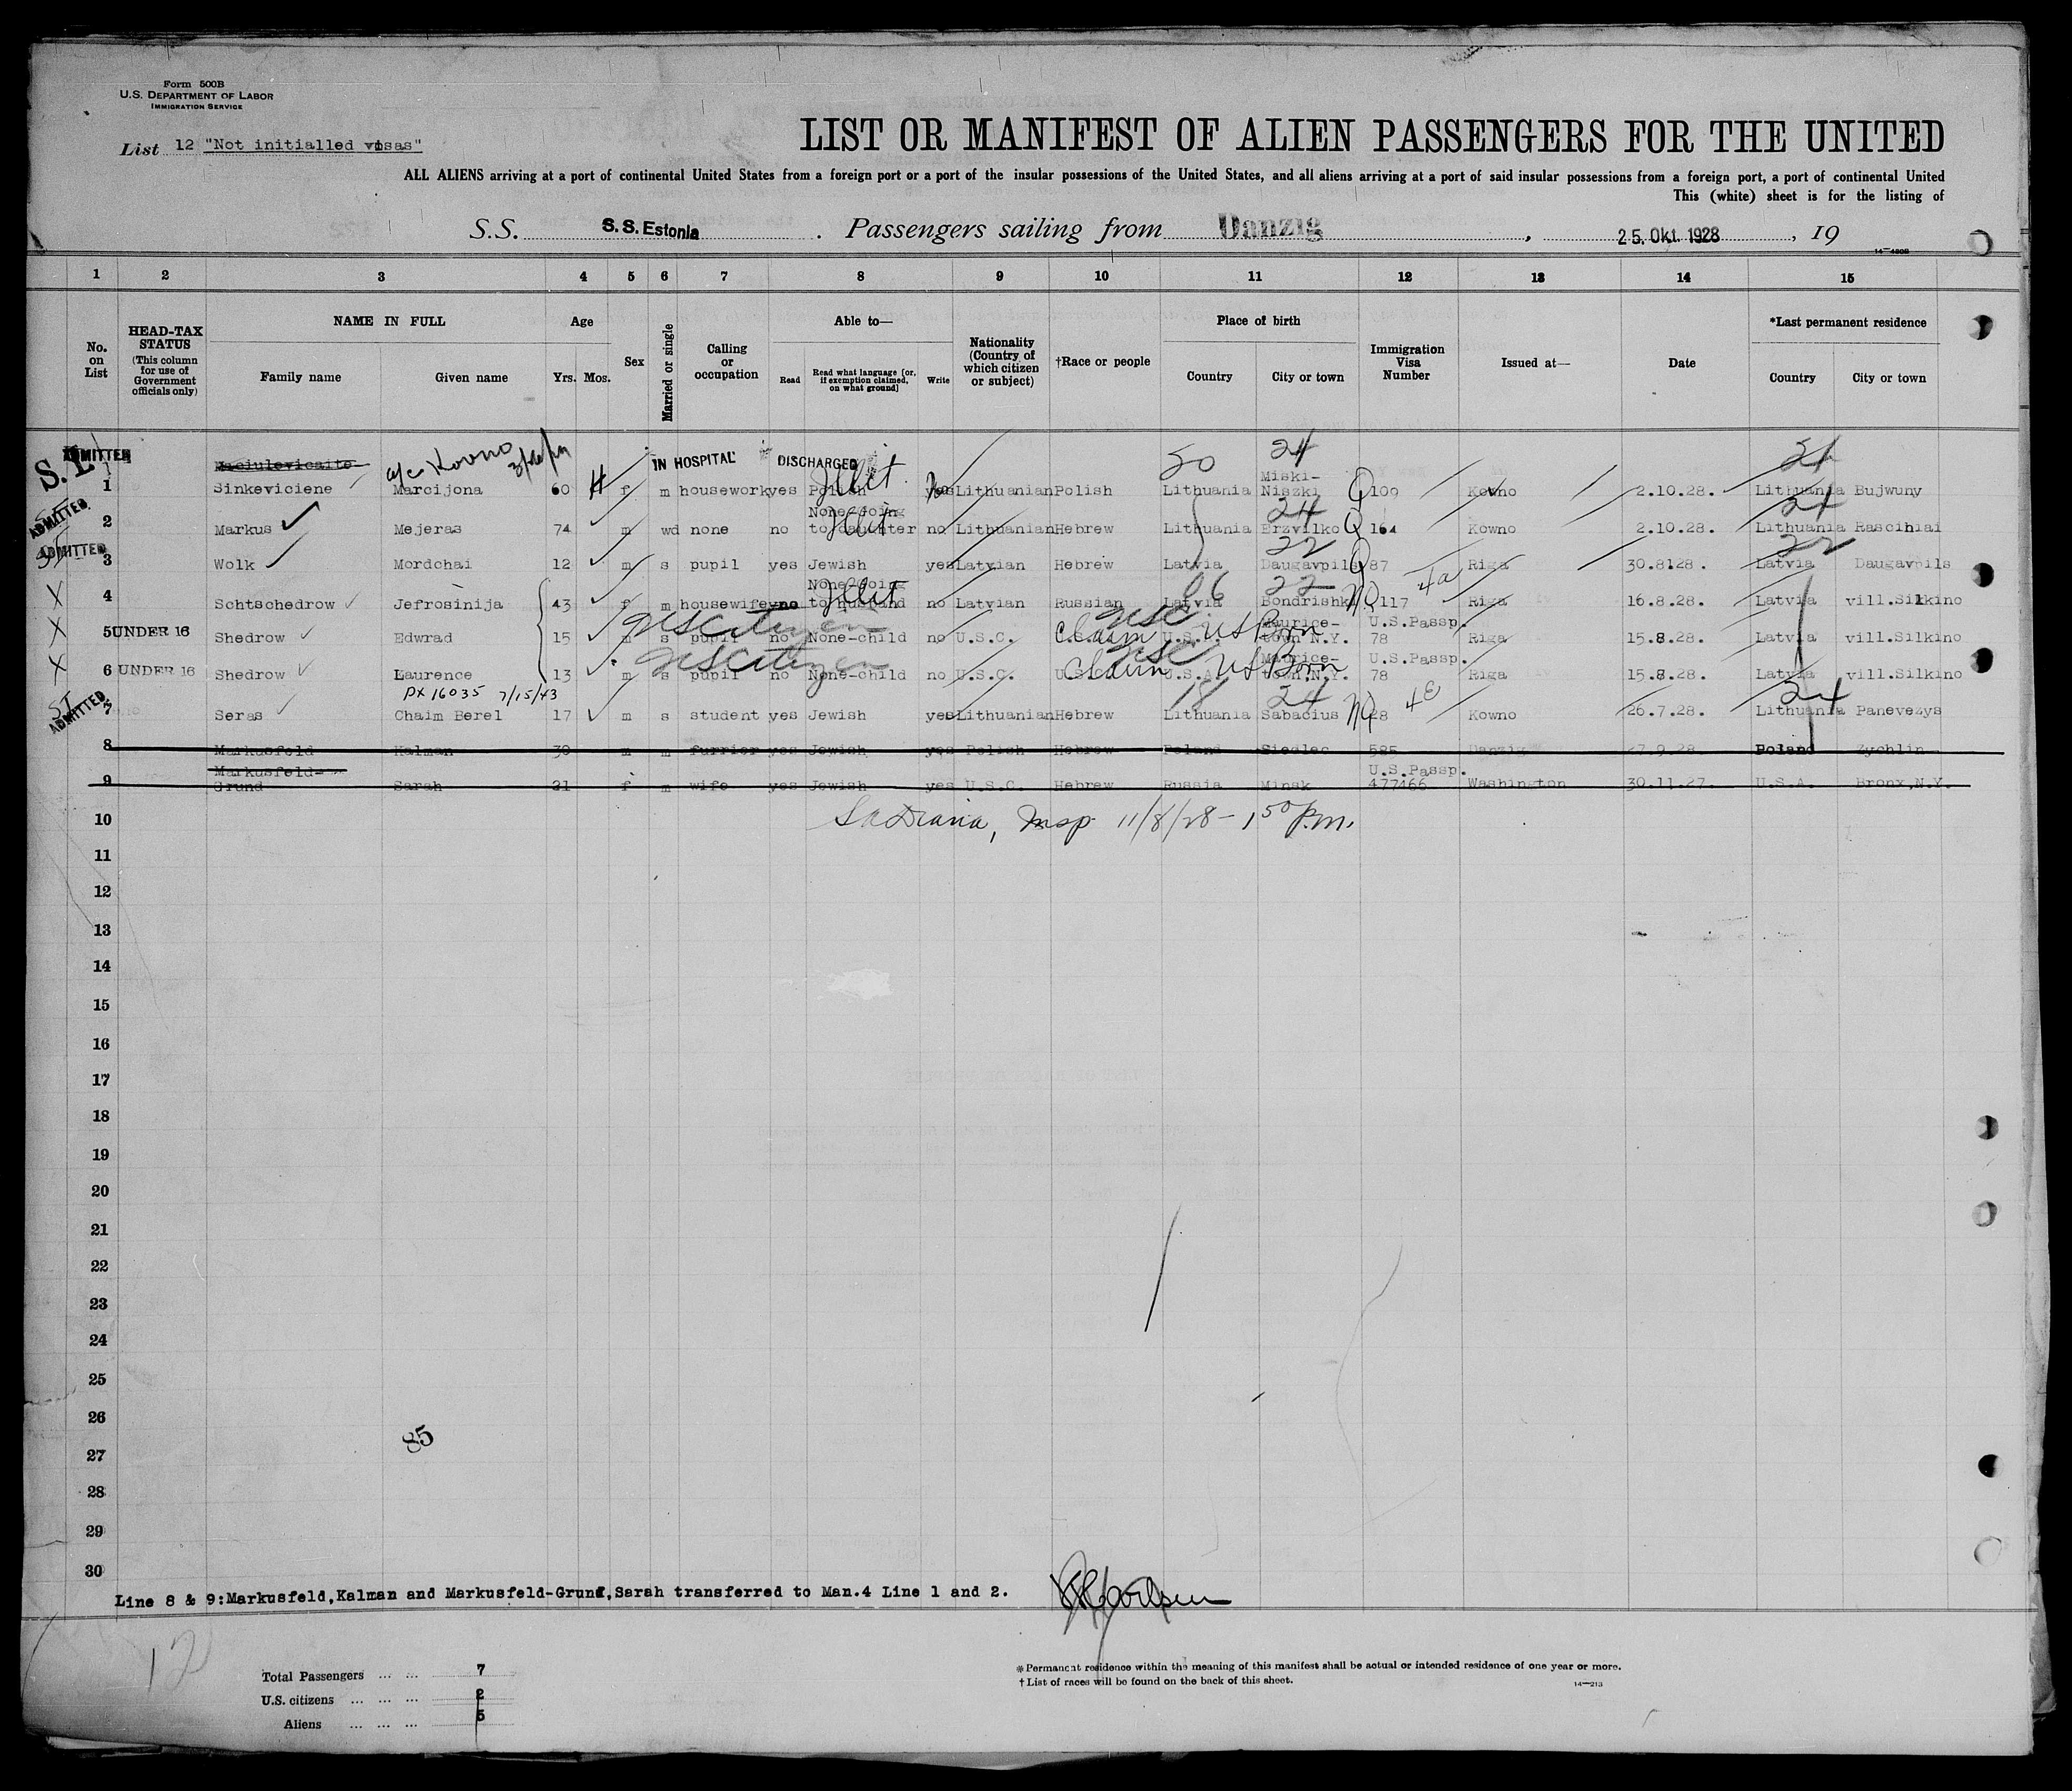 Form 500B
U.S. DEPARTMENT OF LABOR
IMMIGRATION SERVICE
List 12 "Not initialled visas"
LIST OR MANIFEST OF ALIEN PASSENGERS FOR THE UNITED
ALL ALIENS arriving at a port of continental United States from a foreign port or a port of the insular possessions of the United States, and all aliens arriving at a port of said insular possessions from a foreign port, a port of continental United
This (white) sheet is for the listing of
S.S. S.S. Estonia . Passengers sailing from Danzig , 25. Okt. 1928 , 19
14—480B
1 2 3 4 5 6 7 8 9 10 11 12 13 14 15
No. on List
HEAD-TAX STATUS (This column for use of Government officials only)
NAME IN FULL
Family name Given name
Age
Yrs. Mos.
Sex
Married or single
Calling or occupation
Able to—
Read Read what language [or, if exemption claimed, on what ground] Write
Nationality (Country of which citizen or subject)
†Race or people
Place of birth
Country City or town
Immigration Visa Number
Issued at—
Date
*Last permanent residence
Country City or town
S.I. ADMITTED Maciulevicaite a/c Kovno IN HOSPITAL DISCHARGED Illit. 50 24 24
1 Sinkeviciene Marcijona 60 H f m housework yes Polish yes No Lithuanian Polish Lithuania Miski-Niszki Q 109 Kowno 2.10.28. Lithuania Bujwuny
ADMITTED 2 Markus Mejeras 74 m wd none no None-Going to daughter Illit no Lithuanian Hebrew Lithuania Erzvilko 24 Q 164 Kowno 2.10.28. Lithuania 24 Rascihlai
SI ADMITTED 3 Wolk Mordchai 12 m s pupil yes Jewish yes Latvian Hebrew Latvia Daugavpils 22 Q 87 Riga 30.8128. Latvia 22 Daugavpils
X 4 Schtschedrow Jefrosinija 43 f m housewife no None-Going to husband Illit no Latvian Russian Latvia 06 Bondrishki 22 NQ 117 4a Riga 16.8.28. Latvia vill.Silkino
X 5 UNDER 16 Shedrow Edwrad 15 m s pupil no None-child no U.S.C. Claim U.S.A. US Born Maurice-town N.Y. U.S.Passp. 78 Riga 15.8.28. Latvia vill.Silkino
USCitizen
X 6 UNDER 16 Shedrow Laurence 13 m s pupil no None-child no U.S.C. Claim U.S.A. US Born Maurice-town N.Y. U.S.Passp. 78 Riga 15.8.28. Latvia vill.Silkino
USCitizen
PX 16035 7/15/43
SI ADMITTED 7 Seras Chaim Berel 17 m s student yes Jewish yes Lithuanian Hebrew Lithuania 18 Sabacius 24 NQ 28 4E Kowno 26.7.28. Lithuania 24 Panevezys
8 Markusfeld Kalman 30 m m furrier yes Jewish yes Polish Hebrew Poland Siedlec 585 Danzig 27.9.28 Poland Zychlin
9 Markusfeld-Grund Sarah 31 f m wife yes Jewish yes U.S.C. Hebrew Russia Minsk U.S.Passp. 477466 Washington 30.11.27. U.S.A. Bronx,N.Y.
10 Insp 11/8/28 - 1 50 P.m.
11
12
13
14
15
16
17
18
19
20
21
22
23
24
25
26
27 85
28
29
30
Line 8 & 9:Markusfeld,Kalman and Markusfeld-Grund,Sarah transferred to Man.4 Line 1 and 2.
12
Total Passengers ... ... 7
U.S. citizens ... ... ... 2
Aliens ... ... ... 5
*Permanent residence within the meaning of this manifest shall be actual or intended residence of one year or more.
†List of races will be found on the back of this sheet.
14—213